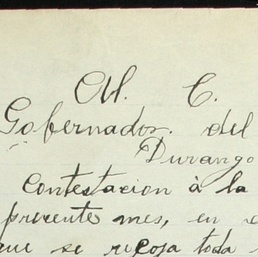 Al C.
Gobernador del
Durango
Contestacion à la
presente mes, en
que se recoja toda